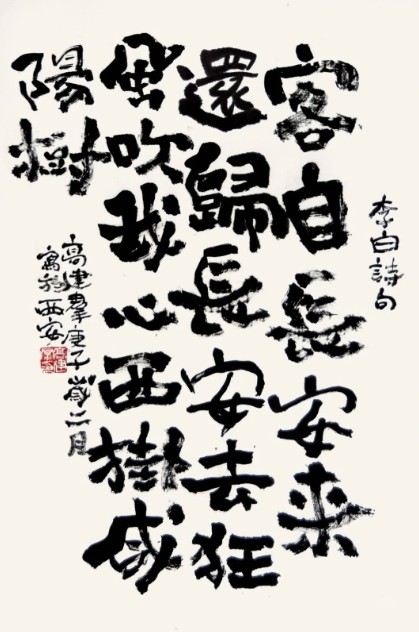 李白詩句
客自長安来
還歸長安去狂
風吹我心西掛咸
陽樹
高建羣庚子歲二月
寓於西安